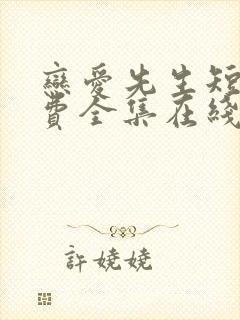 戀愛先生短
費全集在綫
許嬈嬈